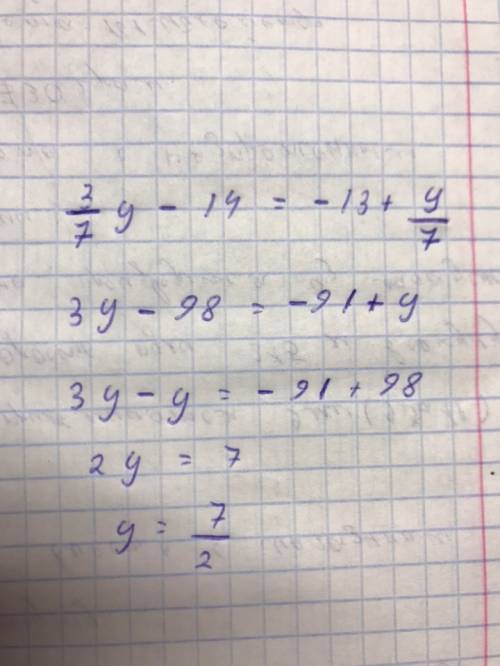 3/7 y - 14 = -13 + y/7
3y - 98 = -91 + y
3y - y = -91 + 98
2y = 7
y = 7/2